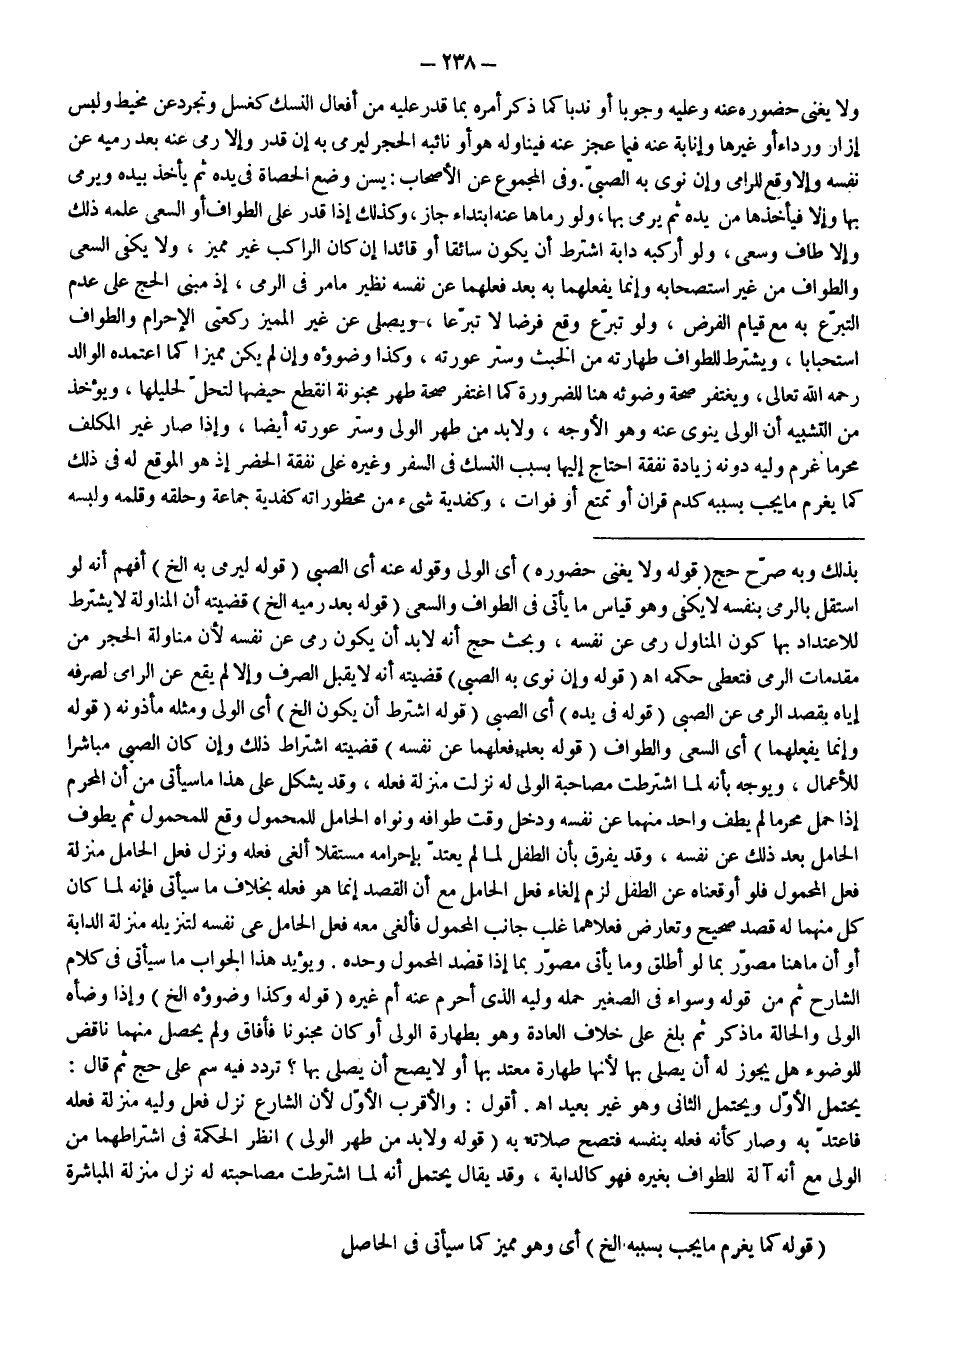 – ٢٣٨ –
ولا يغنى حضوره عنه وعليه وجوبا أو ندبا كما ذكر أمره بما قدر عليه من أفعال النسك كغسل وتجرد عن مخيط ولبس
إزار ورداء أو غيرها وإنابة عنه فيما عجز عنه فيناوله هو أو نائبه الحجر ليرمى به إن قدر وإلا رمى عنه بعد رميه عن
نفسه وإلا وقع للرامى وإن نوى به الصبىّ . وفى المجموع عن الأصحاب : يسن وضع الحصاة فى يده ثم يأخذ بيده ويرمى
بها وإلا فيأخذها من يده ثم يرمى بها ، ولو رماها عنه ابتداء جاز ، وكذلك إذا قدر على الطواف أو السعى علمه ذلك
وإلا طاف وسعى ، ولو أركبه دابة اشترط أن يكون سائقا أو قائدا إن كان الراكب غير مميز ، ولا يكفى السعى
والطواف من غير استصحابه وإنما يفعلهما به بعد فعلهما عن نفسه نظير مامر فى الرمى ، إذ مبنى الحج على عدم
التبرّع به مع قيام الفرض ، ولو تبرّع وقع فرضا لا تبرّعا ، ويصلى عن غير المميز ركعتى الإحرام والطواف
استحبابا ، ويشترط للطواف طهارته من الخبث وستر عورته ، وكذا وضوؤه وإن لم يكن مميزا كما اعتمده الوالد
رحمه الله تعالى ، ويغتفر صحة وضوئه هنا للضرورة كما اغتفر صحة طهر مجنونة انقطع حيضها لتحلّ لحليلها ، ويؤخذ
من التشبيه أن الولى ينوى عنه وهو الأوجه ، ولابد من طهر الولى وستر عورته أيضا ، وإذا صار غير المكلف
محرما غرم وليه دونه زيادة نفقة احتاج إليها بسبب النسك فى السفر وغيره على نفقة الحضر إذ هو الموقع له فى ذلك
كما يغرم مايجب بسببه كدم قران أو تمتع أو فوات ، وكفدية شىء من محظوراته كفدية جماعة وحلقه وقلمه ولبسه
بذلك وبه صرّح حج ( قوله ولا يغنى حضوره ) أى الولى وقوله عنه أى الصبى ( قوله ليرمى به الخ ) أفهم أنه لو
استقل بالرمى بنفسه لايكفى وهو قياس ما يأتى فى الطواف والسعى ( قوله بعد رميه الخ ) قضيته أن المناولة لايشترط
للاعتداد بها كون المناول رمى عن نفسه ، وبحث حج أنه لابد أن يكون رمى عن نفسه لأن مناولة الحجر من
مقدمات الرمى فتعطى حكمه اه ( قوله وإن نوى به الصبى ) قضيته أنه لايقبل الصرف وإلا لم يقع عن الرامى لصرفه
إياه بقصد الرمى عن الصبى ( قوله فى يده ) أى الصبى ( قوله اشترط أن يكون الخ ) أى الولى ومثله مأذونه ( قوله
وإنما يفعلهما ) أى السعى والطواف ( قوله بعد فعلهما عن نفسه ) قضيته اشتراط ذلك وإن كان الصبى مباشرا
للأعمال ، ويوجه بأنه لما اشترطت مصاحبة الولى له نزلت منزلة فعله ، وقد يشكل على هذا ماسيأتى من أن المحرم
إذا حمل محرما لم يطف واحد منهما عن نفسه ودخل وقت طوافه ونواه الحامل للمحمول وقع للمحمول ثم يطوف
الحامل بعد ذلك عن نفسه ، وقد يفرق بأن الطفل لما لم يعتدّ بإحرامه مستقلا ألغى فعله ونزل فعل الحامل منزلة
فعل المحمول فلو أوقعناه عن الطفل لزم إلغاء فعل الحامل مع أن القصد إنما هو فعله بخلاف ما سيأتى فإنه لما كان
كل منهما له قصد صحيح وتعارض فعلاهما غلب جانب المحمول فألغى معه فعل الحامل عى نفسه لتنزيله منزلة الدابة
أو أن ماهنا مصوّر بما لو أطلق وما يأتى مصوّر بما إذا قصد المحمول وحده . ويؤيد هذا الجواب ما سيأتى فى كلام
الشارح ثم من قوله وسواء فى الصغير حمله وليه الذى أحرم عنه أم غيره ( قوله وكذا وضوؤه الخ ) وإذا وضأه
الولى والحالة ماذكر ثم بلغ على خلاف العادة وهو بطهارة الولى أو كان مجنونا فأفاق ولم يحصل منهما ناقض
للوضوء هل يجوز له أن يصلى بها لأنها طهارة معتد بها أو لايصح أن يصلى بها ؟ تردد فيه سم على حج ثم قال :
يحتمل الأوّل ويحتمل الثانى وهو غير بعيد اه . أقول : والأقرب الأوّل لأن الشارع نزل فعل وليه منزلة فعله
فاعتدّ به وصار كأنه فعله بنفسه فتصح صلاته به ( قوله ولابد من طهر الولى ) انظر الحكمة فى اشتراطهما من
الولى مع أنه آلة للطواف بغيره فهو كالدابة ، وقد يقال يحتمل أنه لما اشترطت مصاحبته له نزل منزلة المباشرة
( قوله كما يغرم مايجب بسببه الخ ) أى وهو مميز كما سيأتى فى الحاصل